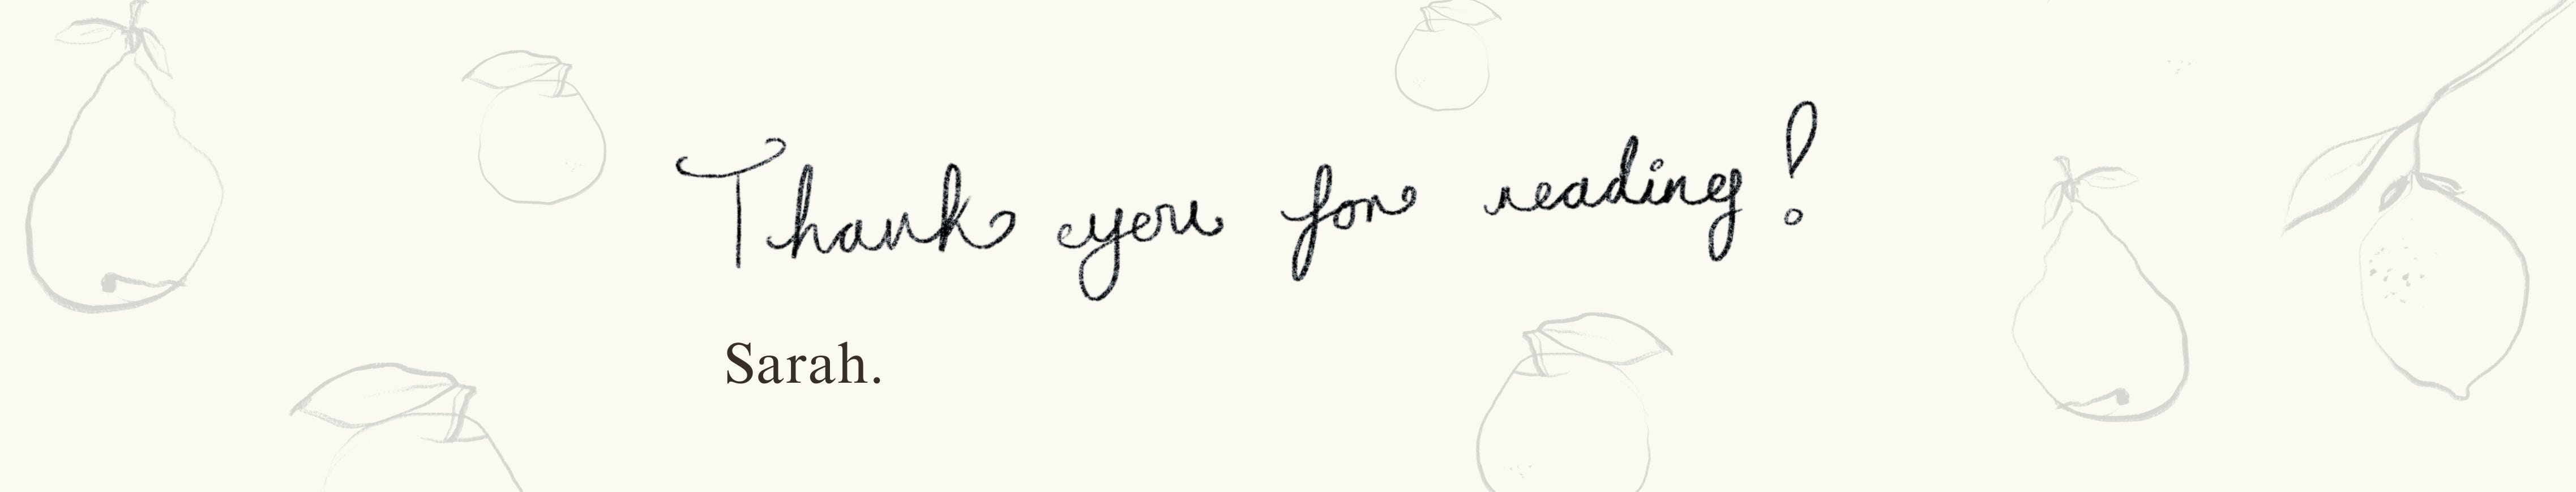 Thank you for reading!
Sarah.